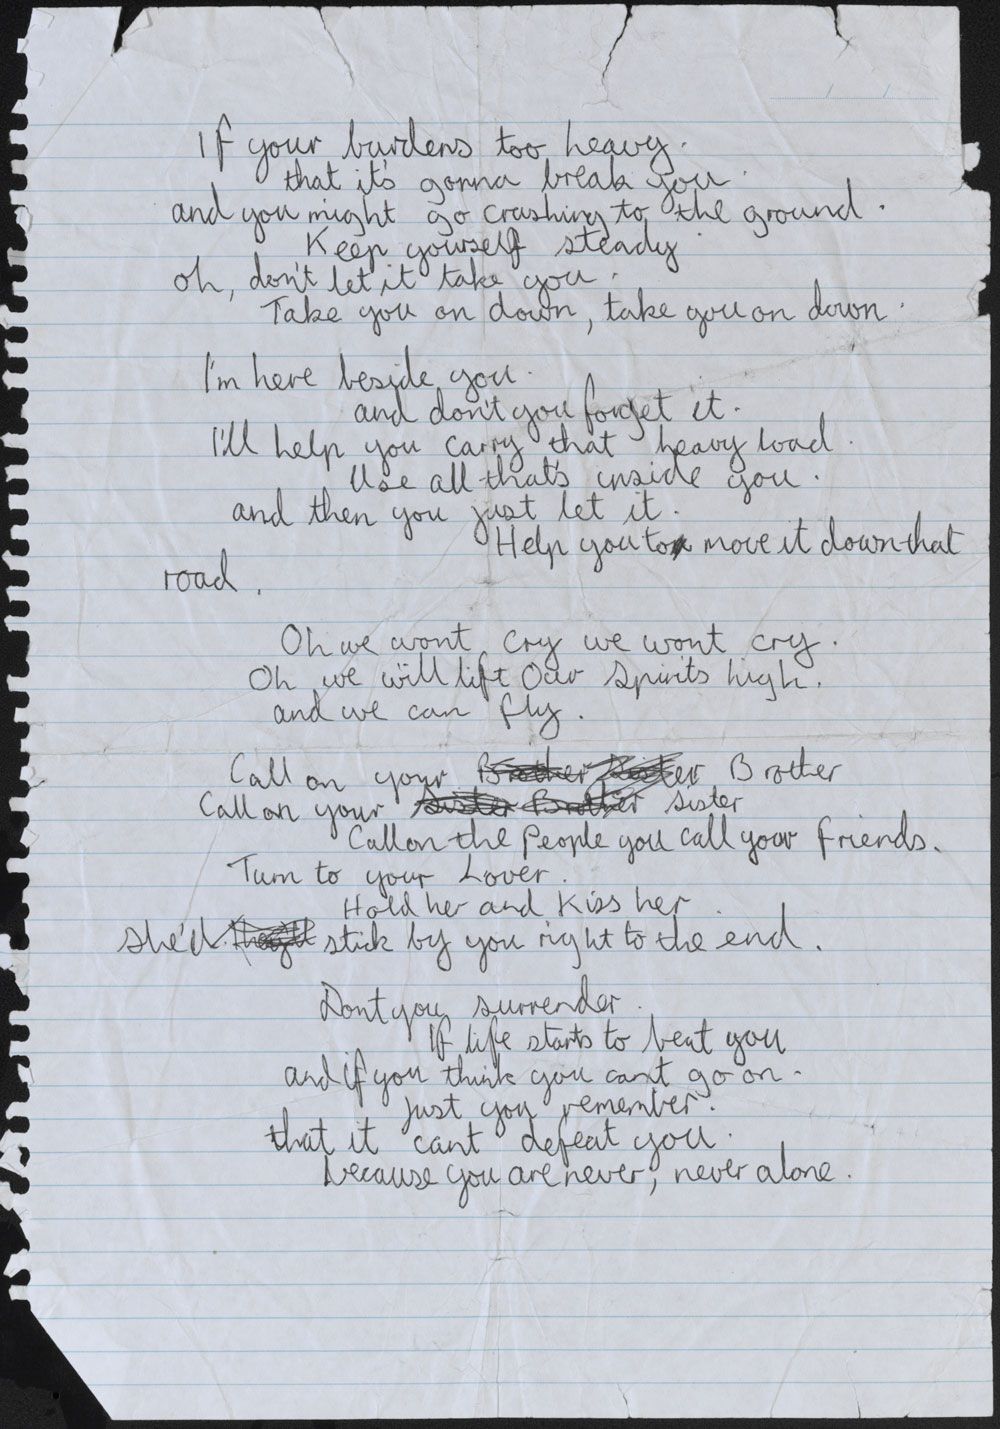 If your burdens too heavy.
that it's gonna break you.
and you might go crashing to the ground.
Keep yourself steady
oh, don't let it take you.
Take you on down, take you on down.
I'm here beside you.
and don't you forget it.
I'll help you carry that heavy load.
Use all that's inside you.
and then you just let it.
Help you to move it down that
road.
Oh we wont cry we wont cry.
Oh we will lift Our spirits high.
and we can fly.
Call on your Brother Sister Brother
Call on your Sister Brother Sister
Call on the People you call your friends.
Turn to your Lover.
Hold her and Kiss her.
she'd stick by you right to the end.
Dont you surrender.
If life starts to beat you
and if you think you cant go on.
Just you remember.
that it cant defeat you.
because you are never, never alone.